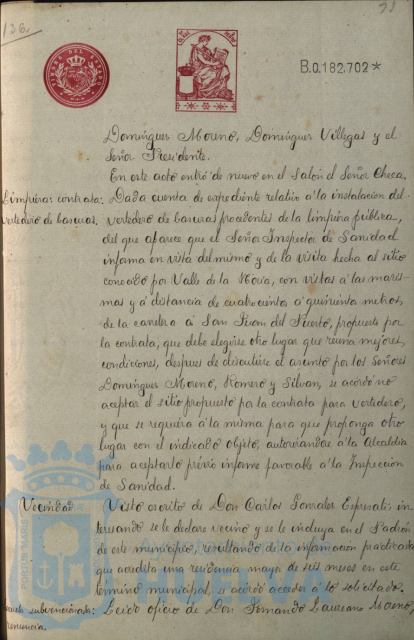 136.
93
TIMBRE DEL ESTADO
B.0.182.702 *
Dominguez Moreno, Dominguez Villegas y el
Señor Presidente.
En este acto entró de nuevo en el Salon el Señor Checa.
Limpieza: contrata:
vertedero de basuras.
Dada cuenta de expediente relativo á la instalacion del
vertedero de basuras procedentes de la limpieza pública,
del que aparece que el Señor Inspector de Sanidad
informa en vista del mismo y de la visita hecha al sitio
conocido por Valle de la Novia, con vistas á las maris-
mas y á distancia de cuatrocientos á quinientos metros,
de la carretera á San Juan del Puerto, propuesto por
la contrata, que debe elegirse otro lugar que reuna mejores
condiciones, despues de discutirse el asunto por los Señores
Dominguez Moreno, Romero y Silvan, se acordó no
aceptar el sitio propuesto por la contrata para vertedero,
y que se requiera á la misma para que proponga otro
lugar con el indicado objeto, autorizandose á la Alcaldia
para aceptarlo prévio informe favorable de la Inspeccion
de Sanidad.
Vecindad
Visto escrito de Don Carlos Gonzalez Espresati: in-
teresando se le declare vecino y se le incluya en el Padrón
de este municipio, resultando de la informacion practicada
que acredita una residencia mayor de seis meses en este
término municipal, se acordó acceder á lo solicitado.
subvencionada:
renuncia.
Leido oficio de Don Fernando Laureano Moreno,
PORTUS MARIS
Ayuntamiento de
HUELVA